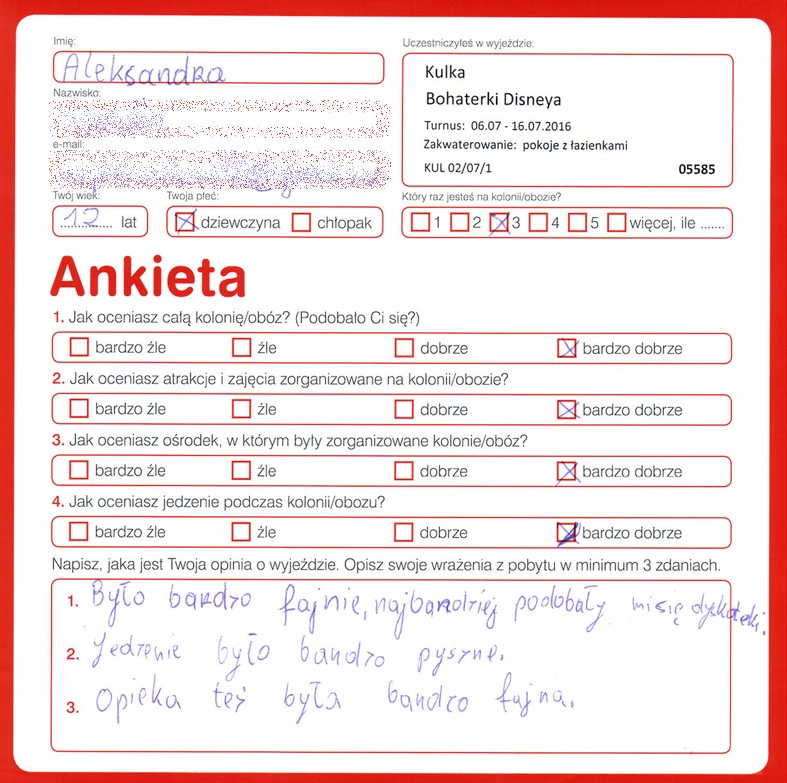 Imię:
Aleksandra
Nazwisko:
e-mail:
Twój wiek:
12 lat
Twoja płeć:
dziewczyna chłopak
Uczestniczyłeś w wyjeździe:
Kulka
Bohaterki Disneya
Turnus: 06.07 - 16.07.2016
Zakwaterowanie: pokoje z łazienkami
KUL 02/07/1 05585
Który raz jesteś na kolonii/obozie?
1 2 3 4 5 więcej, ile .......
Ankieta
1. Jak oceniasz całą kolonię/obóz? (Podobało Ci się?)
bardzo źle źle dobrze bardzo dobrze
2. Jak oceniasz atrakcje i zajęcia zorganizowane na kolonii/obozie?
bardzo źle źle dobrze bardzo dobrze
3. Jak oceniasz ośrodek, w którym były zorganizowane kolonie/obóz?
bardzo źle źle dobrze bardzo dobrze
4. Jak oceniasz jedzenie podczas kolonii/obozu?
bardzo źle źle dobrze bardzo dobrze
Napisz, jaka jest Twoja opinia o wyjeździe. Opisz swoje wrażenia z pobytu w minimum 3 zdaniach.
1. Było bardzo fajnie, najbardziej podobały mi się dyskoteki.
2. Jedzenie było bardzo pyszne.
3. Opieka też była bardzo fajna.